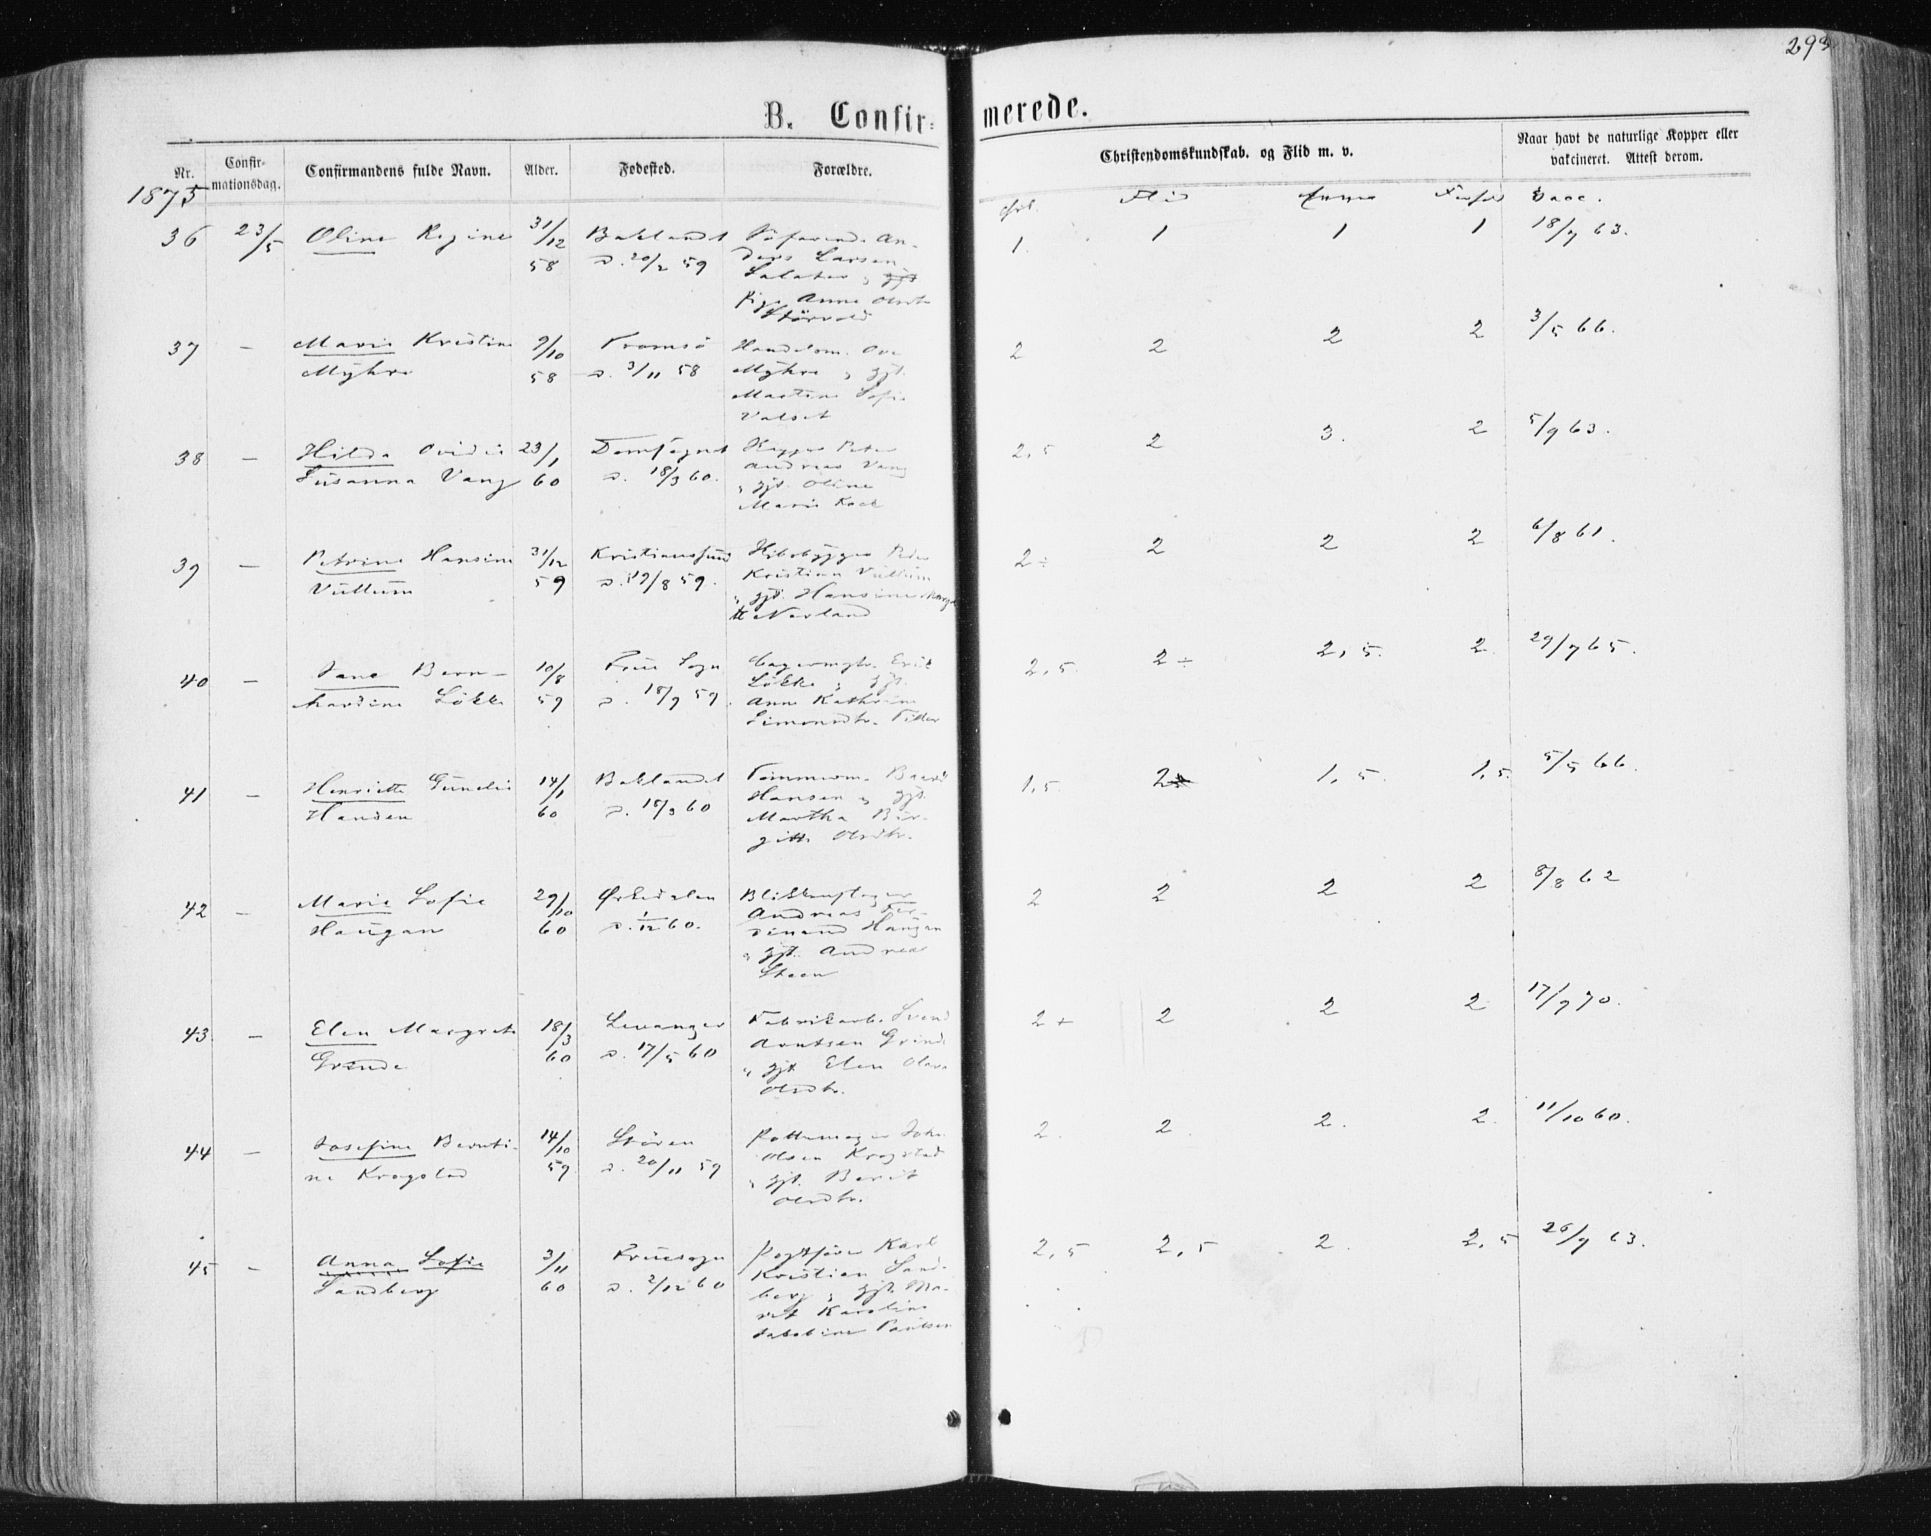 293
B. Confirmerede.
Nr. Confirmationsdag. Confirmandens fulde Navn. Alder. Fødested. Forældre. Christendomskundskab. og Flid m. v. Naar havt de naturlige Kopper eller vakcineret. Attest derom.
1875
Flid Vacc.
36 23/5 Oline Regine 31/12 Baklandt 1. 1 1 1 18/7 63.
58 d. 20/2 59 Anders Larsen
Anne
37 – Marie Kristine 9/10 Tromsø Ove 2 2 2 2 3/5 66.
Myhre 58 d. 3/11 58 Myhre gjt.
Sofie
Valset
38 – Hilda Ovidia 23/1 Domsognet Peter 2,5 2 3. 2 5/9 63.
Susanna Vang 60 d. 18/3 60. Andreas Vang
gjt. Oline
Marie Kock
39 – Petrine Hansine 31/12 Kristianssund Peder 2 ÷ 2 2 2 6/8 61.
Vullum 59 d. 19/8 59. Kristian Vullum
gjt. Hansine
40 – Jane Bern- 10/8 Frue Sogn Erik 2,5. 2 ÷ 2,5. 2. 29/7 65.
hardine Løkke 59 d. 18/9 59. Løkke gjt.
Anne Kathrine
Simonsdtr. Tiller
41 – Henriette Gunelie 14/1 Baklandet Tømmerm. 1,5. 2 1,5. 1,5. 5/5 66.
Hansen 60 d. 18/3 60 Hansen gjt.
Martha Bir-
gitte Olsdtr.
42 – Marie Sofie 29/10 Ørkedalen 2 2 2 2 8/8 62
Haugan 60 d. 1/12 60. Andreas Fer-
dinand Haugan
gjt. Andrea
Steen
43 – Elen Margrete 18/3 Levanger Fabrikarb. Svend 2 + 2 2 2 17/7 70.
Grinde 60 d. 17/5 60 Arntsen Grinde
gjt. Elen Olava
Olsdtr.
44 – Josefine Bernti- 14/10 Støren Pottemager John 2. 2. 2. 2. 11/10 60.
ne Krogstad 59 d. 20/11 59 Olsen Krogstad
gjt. Berit
Olsdtr.
45 – Anna Sofie 3/11 Fruesogn Karl 2,5 2,5 2. 2,5 26/9 63.
Sandberg 60 d. 2/12 60 Kristian Sand-
berg gjt. Ma-
ret Karoline
Jakobine Paulsen